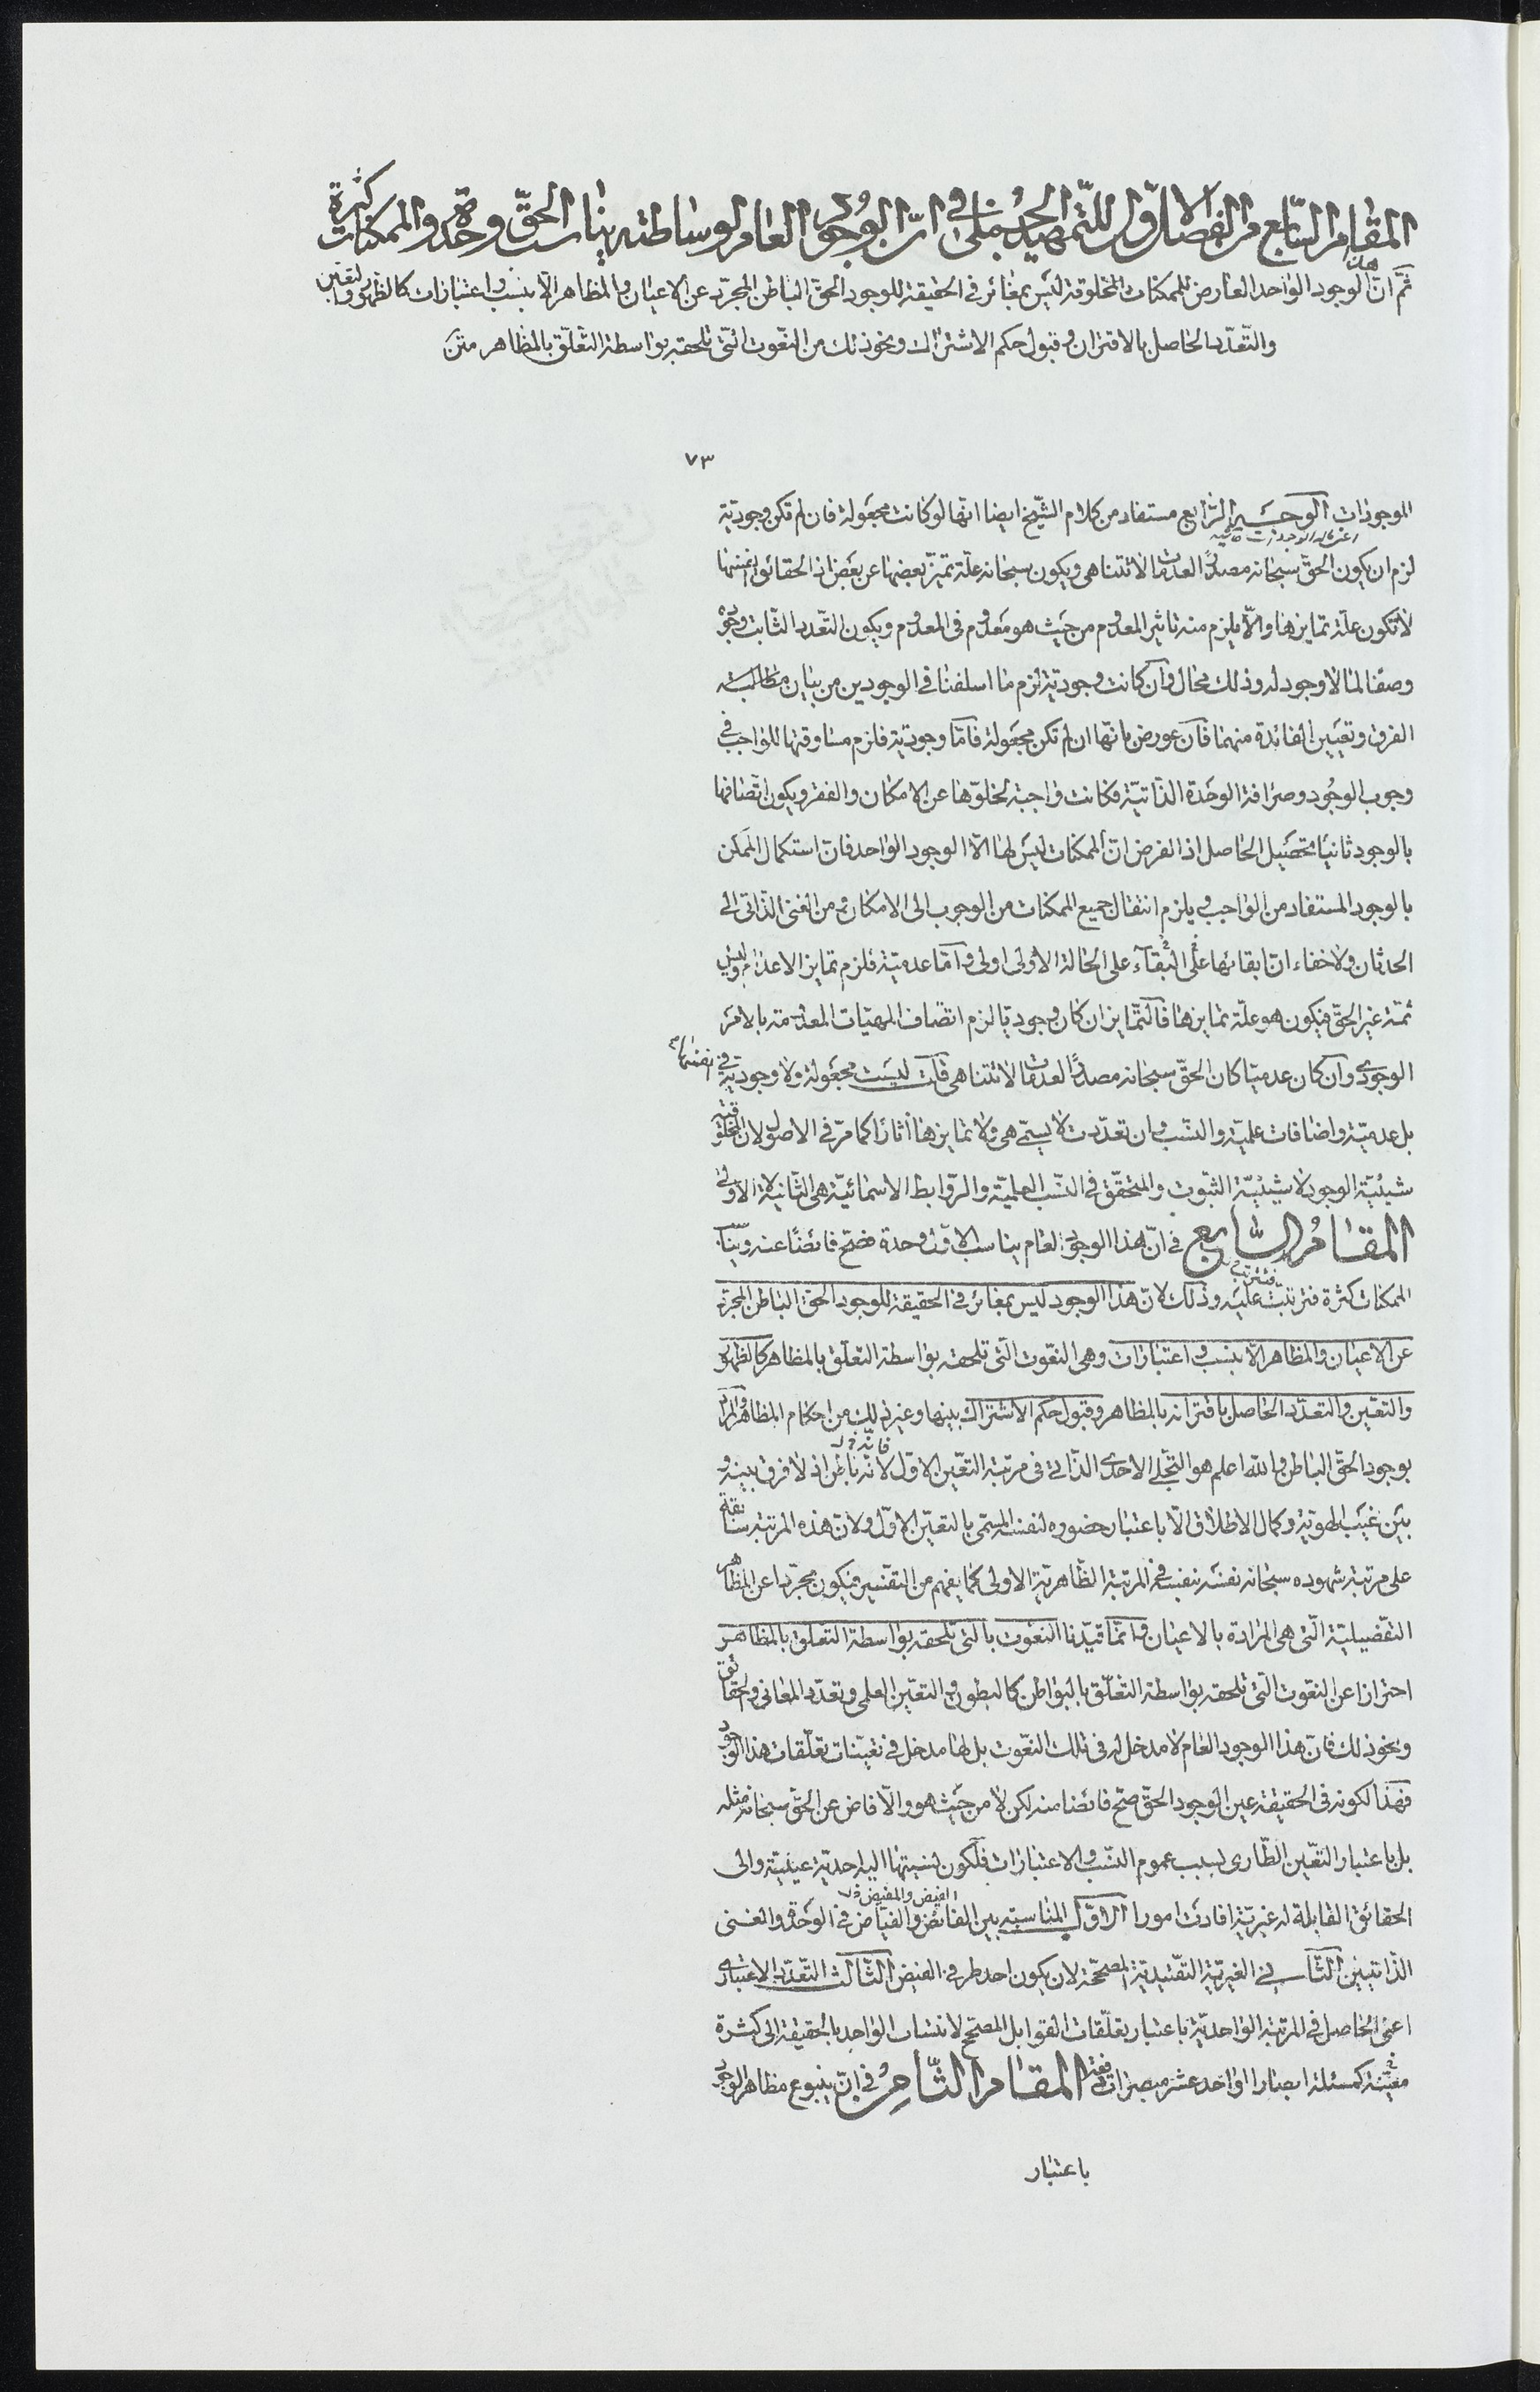 المقام السابع من الفصل الاول للتمهيد الجملى فى ان الوجود العام لوساطته يناسب الحق وحدة والممكنات كثرة
ثم ان هذا الوجود الواحد العارض للممكنات المخلوقة ليس بمغائر فى الحقيقة للوجود الحق الباطن المجرد عن الاعيان والمظاهر الا بنسب واعتبارات كالظهور والتعين
والتعدد الحاصل بالاقتران وقبول حكم الاشتراك ونحو ذلك من النعوت التى تلحقه بواسطة التعلق بالمظاهر متن
٧٣
الموجودات الوجه الرابع مستفاد من كلام الشيخ ايضا انها لو كانت مجعولة فان لم تكن وجودية
لزم ان يكون الحق سبحانه مصدرا لعدمات لا تتناهى ويكون سبحانه علة تميز بعضها عن بعض اذ الحقائق انفسها
لا تكون علة تمايزها والا يلزم منه تاثير المعدوم من حيث هو معدوم فى المعدوم ويكون التعدد الثابت وجوده
وصفا لما لا وجود له وذلك محال وان كانت وجودية لزم ما اسلفنا فى الوجودين من بيان مطالبة
الفرق وتعيين الفائدة منهما فان عورض بانها ان لم تكن مجعولة فاما وجودية فلزم مساوقتها للواجب فى
وجوب الوجود وصرافة الوحدة الذاتية فكانت واجبة لخلوها عن الامكان والفقر ويكون اتصافها
بالوجود ثانيا تحصيل الحاصل اذ الفرض ان الممكنات ليس لها الا الوجود الواحد فان استكمال الممكن
بالوجود المستفاد من الواجب ويلزم انتقال جميع الممكنات من الوجوب الى الامكان ومن الغنى الذاتى الى
الحدثان ولا خفاء ان ابقائها على البقاء على الحالة الاولى اولى واما عدمية فلزم تمايز الاعدام وليس
ثمة غير الحق فيكون هو علة تمايزها فالتمايز ان كان وجوديا لزم اتصاف المهيات المعدومة بالامر
الوجودى وان كان عدميا كان الحق سبحانه مصدرا لعدمات لا تتناهى قلت ليست مجعولة ولا وجودية فى نفسها
بل عدمية واضافات علمية والنسب وان تعددت لا يسمى هى ولا تمايزها آثارا كما مر فى الاصول لان المخلوقية
شيئية الوجود لا شيئية الثبوت والمتحقق فى النسب العلمية والروابط الاسمائية هى الثانية لا الاولى
المقام السابع فى ان هذا الوجود العام يناسب الاول وحدة فصح فائضا عنه ويناسب
الممكنات كثرة فترتبت عليه وذلك لان هذا الوجود ليس بمغائر فى الحقيقة للوجود الحق الباطن المجرد
عن الاعيان والمظاهر الا بنسب واعتبارات وهى النعوت التى تلحقه بواسطة التعلق بالمظاهر كالظهور
والتعين والتعدد الحاصل باقترانه بالمظاهر وقبول حكم الاشتراك بينها وغير ذلك من احكام المظاهر والمراد
بوجود الحق الباطن والله اعلم هو التجلى الاحدى الذاتى فى مرتبة التعين الاول لانه باطن اذ لا فرق بينه و
بين غيب الهوية وكمال الاطلاق الا باعتبار حضوره لنفسه المسمى بالتعين الاول ولان هذه المرتبة سابقة
على مرتبة شهوده سبحانه نفسه بنفسه فى المرتبة الظاهرية الاولى كما يفهم من التفسير فيكون مجردا عن المظاهر
التفصيلية التى هى المرادة بالاعيان وانما قيدنا النعوت بالتى تلحقه بواسطة التعلق بالمظاهر
احترازا عن النعوت التى تلحقه بواسطة التعلق بالبواطن كالبطون والتعين العلمى وتعدد المعانى والحقائق
ونحو ذلك فان هذا الوجود العام لا مدخل له فى تلك النعوت بل لها مدخل فى تعينات تعلقات هذا الوجود
فهذا لكونه فى الحقيقة عين الوجود الحق صح فائضا منه لكن لا من حيث هو والا فاض عن الحق سبحانه مثله
بل باعتبار التعين الطارى بسبب عموم النسب والاعتبارات فلكون نسبتها اليه احدية عينية والى
الحقائق القابلة له غيرية افادت امورا الاول المناسبة بين الفائض والفياض فى الوحدة والغنى
الذاتيين الثانى الغيرية التقييدية المصححة لان يكون احد طرفى الفيض الثالث التعدد الاعتبارى
اعنى الحاصل فى المرتبة الواحدية باعتبار تعلقات القوابل المصحح لانتساب الواحد بالحقيقة الى كثرة
معينة كمسئلة ابصار الواحد عشر مبصرات دفعة المقام الثامن فى ان ينبوع مظاهر الوجود
باعتبار